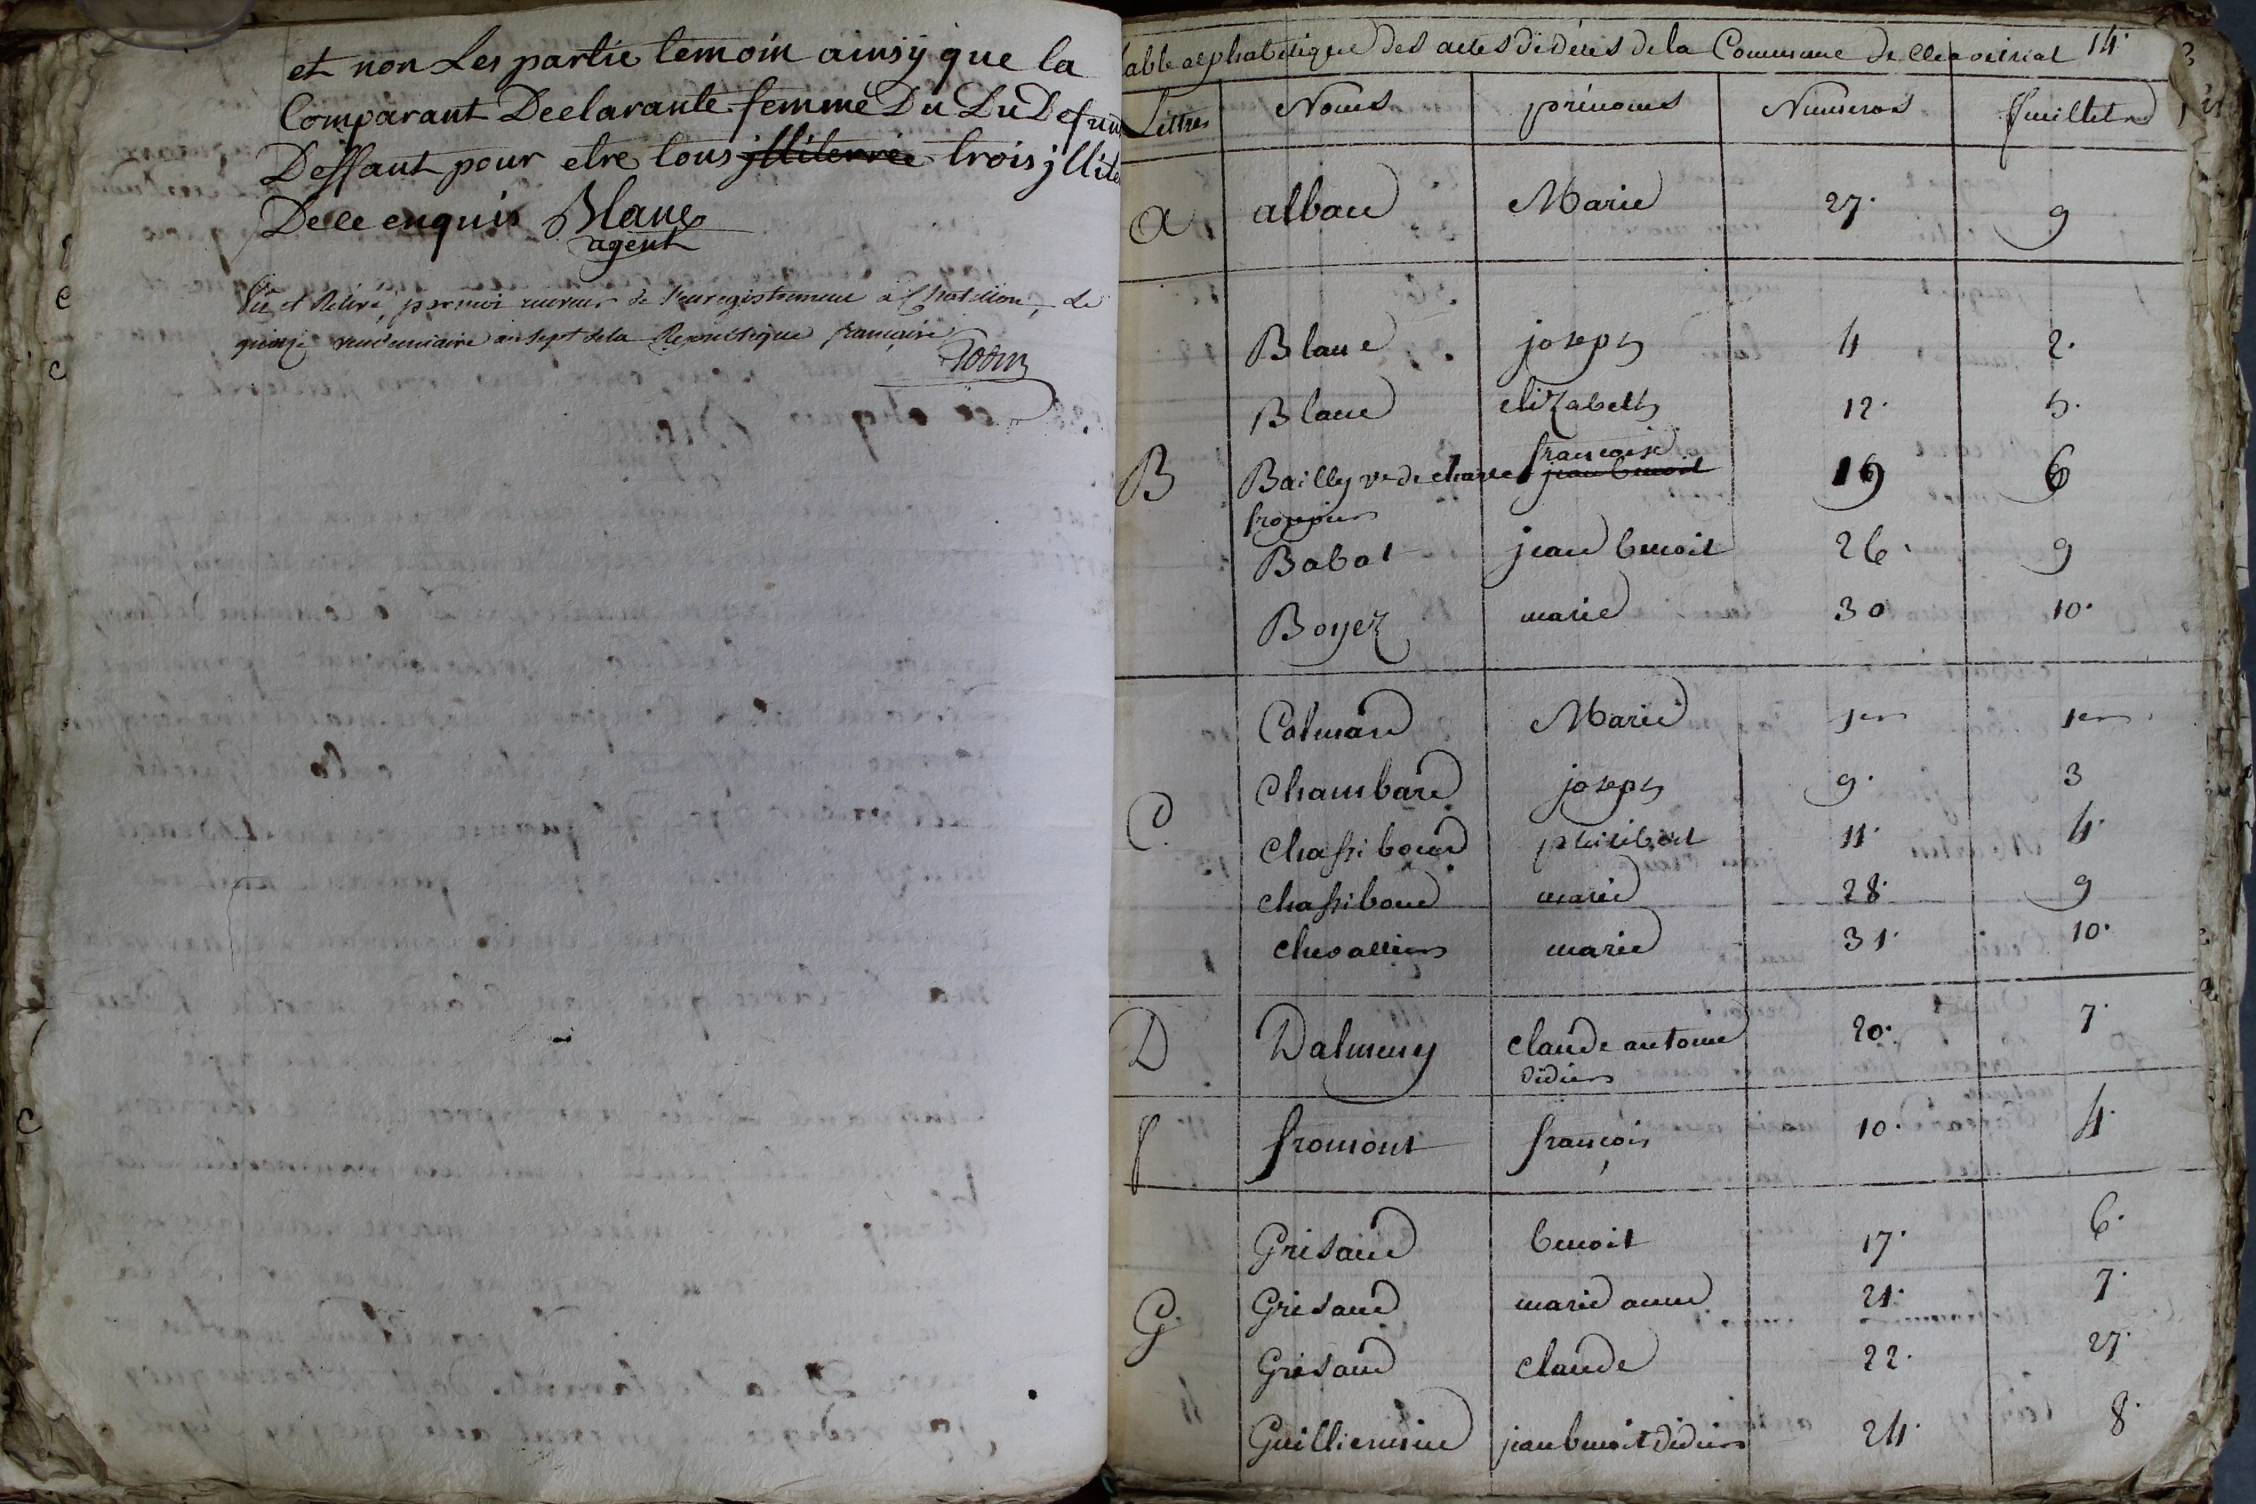 et non Les partie temoin ainsÿ que la
Comparant Declarante femme Du Du Defun
Deffaut pour etre tous jlliterrée trois jllité
De ce enquis Blanc
agent
Vû et Retiré, par moi receveur de l'enregistrement a Chatillon, Le
quinze vendemiaire an sept de la Republique française
able alphabetique des actes de déces de la Commune de 14.
Lettres Noms prénoms Numeros feuillets
a alban Marie 27. 9
Blanc joseph 4 2.
Blanc elizabeth 12. 5.
B Bailly ve de francoise jean benoit 19 6
Babot jean benoit 26. 9
Boyez marie 30 10.
Colmard Marie 1er 1er
Chambard joseph 9. 3
C. Chassiboud philibert 11. 4.
chassiboud marie 28. 9
chevalliers marie 31. 10.
D Dalmeny claude antoine 20. 7.
didiers
f fromont françois 10. 4.
Grisaud benoit 17. 6.
Grisaud marie anne 21. 7.
G. Grisaud claude 22. 27.
Guilliermine jean benoit didiers 24. 8.